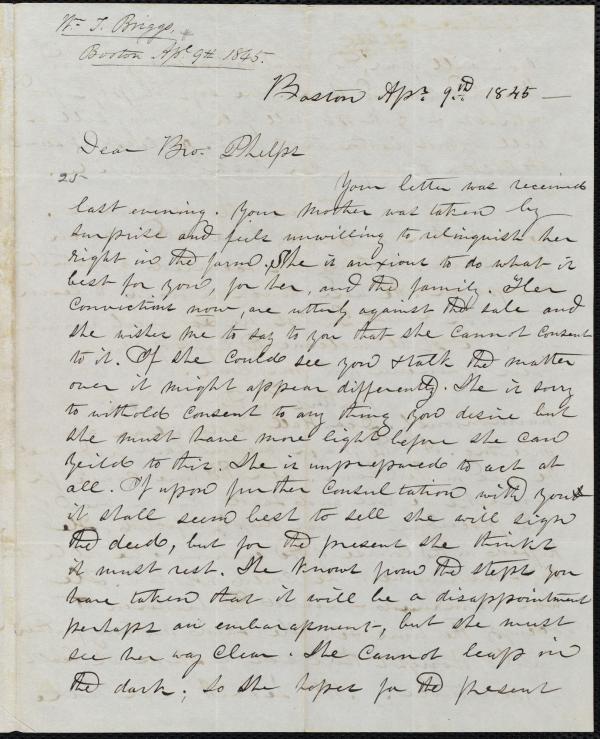 Wm. T. Briggs,
Boston Apl. 9th 1845.
Boston Apr. 9.th 1845 —
Dear Bro. Phelps
25
Your letter was received
last evening. Your Mother was taken by
surprise and feels unwilling to relinquish her
right in the farm. She is anxious to do what is
best for you, for her, and the family. Her
convictions now, are utterly against the sale and
she wishes me to say to you that she cannot consent
to it. If she could see you & talk the matter
over it might appear differently. She is sorry
to withold consent to any thing you desire but
she must have more light before she can
yeild to this. She is unprepared to act at
all. If upon further consultation with you
it shall seem best to sell she will sign
the deed, but for the present she thinks
it must rest. She knows from the steps you
have taken that it will be a disappointment
perhaps an embarassment, but she must
see her way clear. She cannot leap in
the dark; so she hopes for the present